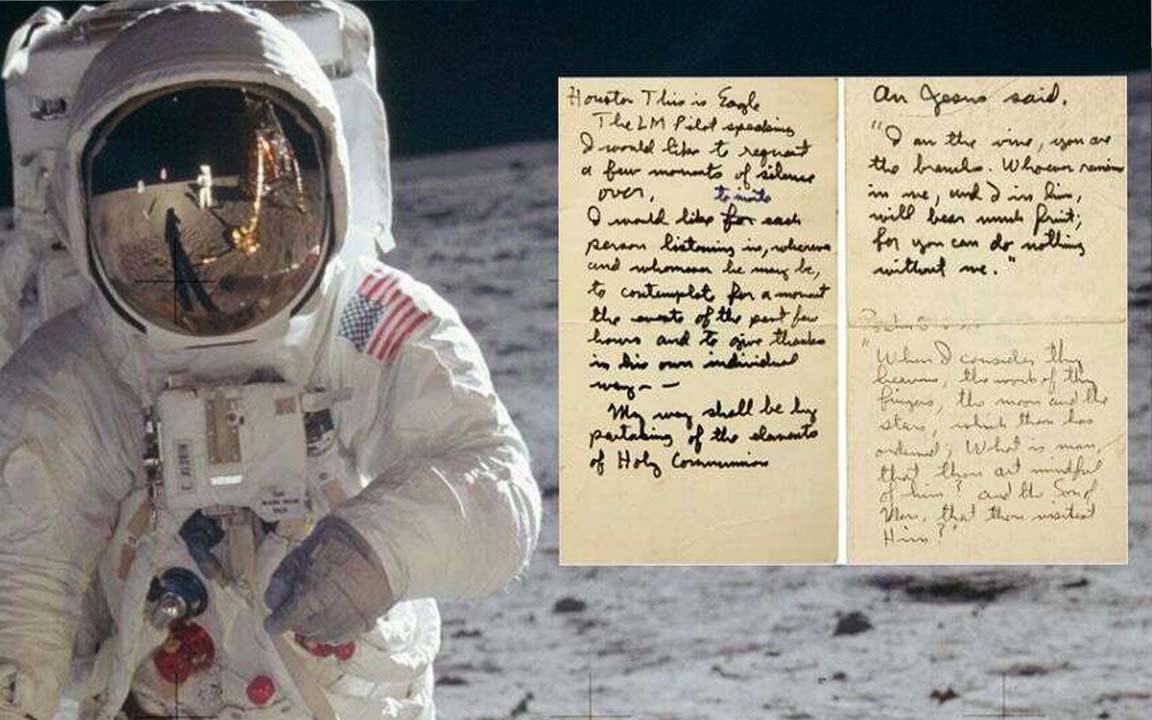 Houston This is Eagle
The LM Pilot speaking
I would like to request
a few moments of silence
over.
to invite
I would like for each
person listening in, wherever
and whomever he may be,
to contemplate for a moment
the events of the past few
hours and to give thanks
in his own individual
way - —
My way shall be by
partaking of the elements
of Holy Communion
An Jesus said,
"I am the vine, you are
the branches. Whoever remains
in me, and I in him,
will bear much fruit;
for you can do nothing
without me."
"When I consider thy
heavens, the work of thy
fingers, the moon and the
stars, which thou has
ordained; What is man,
that thou art mindful
of him? and the Son of
Man, that thou visitest
Him?"